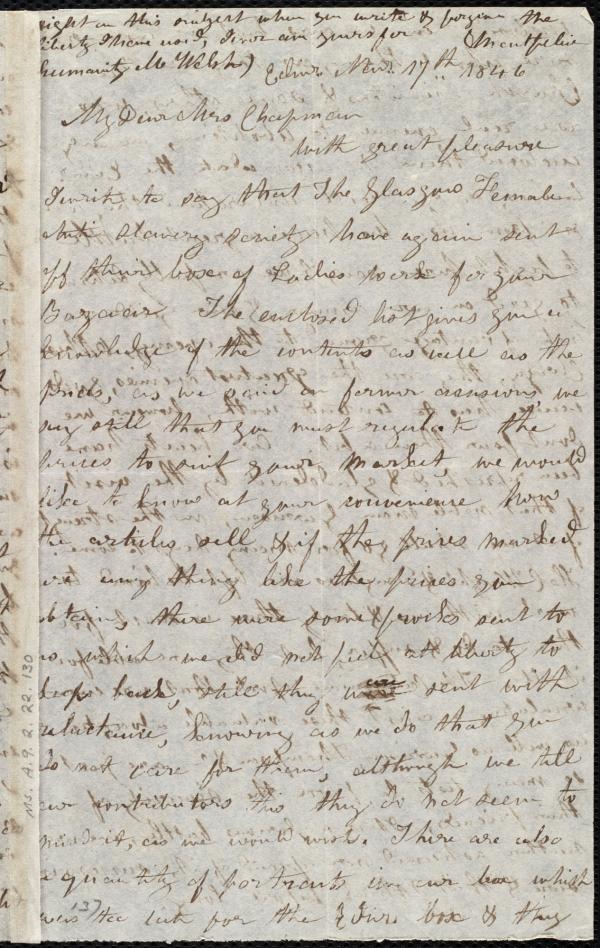 right on this subject when you write & forgive the
liberty I have used, I am yours for
humanity M Welsh)
Edinr Nov. 17th 1846
My Dear Mrs Chapman
With great pleasure
I write to say that The Glasgow Female
Anti slavery society have again sent
off their box of Ladies work for your
Bazaar. The enclosed list gives you a
knowledge of the contents as well as the
prices, as we said on former occasions, we
say still that you must regulate the
prices to suit your market, we would
like to know at your convenience how
the articles sell & if the prices marked
are any thing like the prices you
obtain, there were some frocks sent to
us which we did not feel at liberty to
keep back, still they are sent with
reluctance, knowing as we do that you
do not care for them, although we tell
our contributors this they do not seem to
mind it, as we would wish. There are also
a quantity of portraits in our box which
was too late for the Edinr box & they
Ms. A.9.2.22.130
137